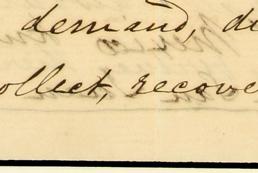 demand, de
ollect, recove